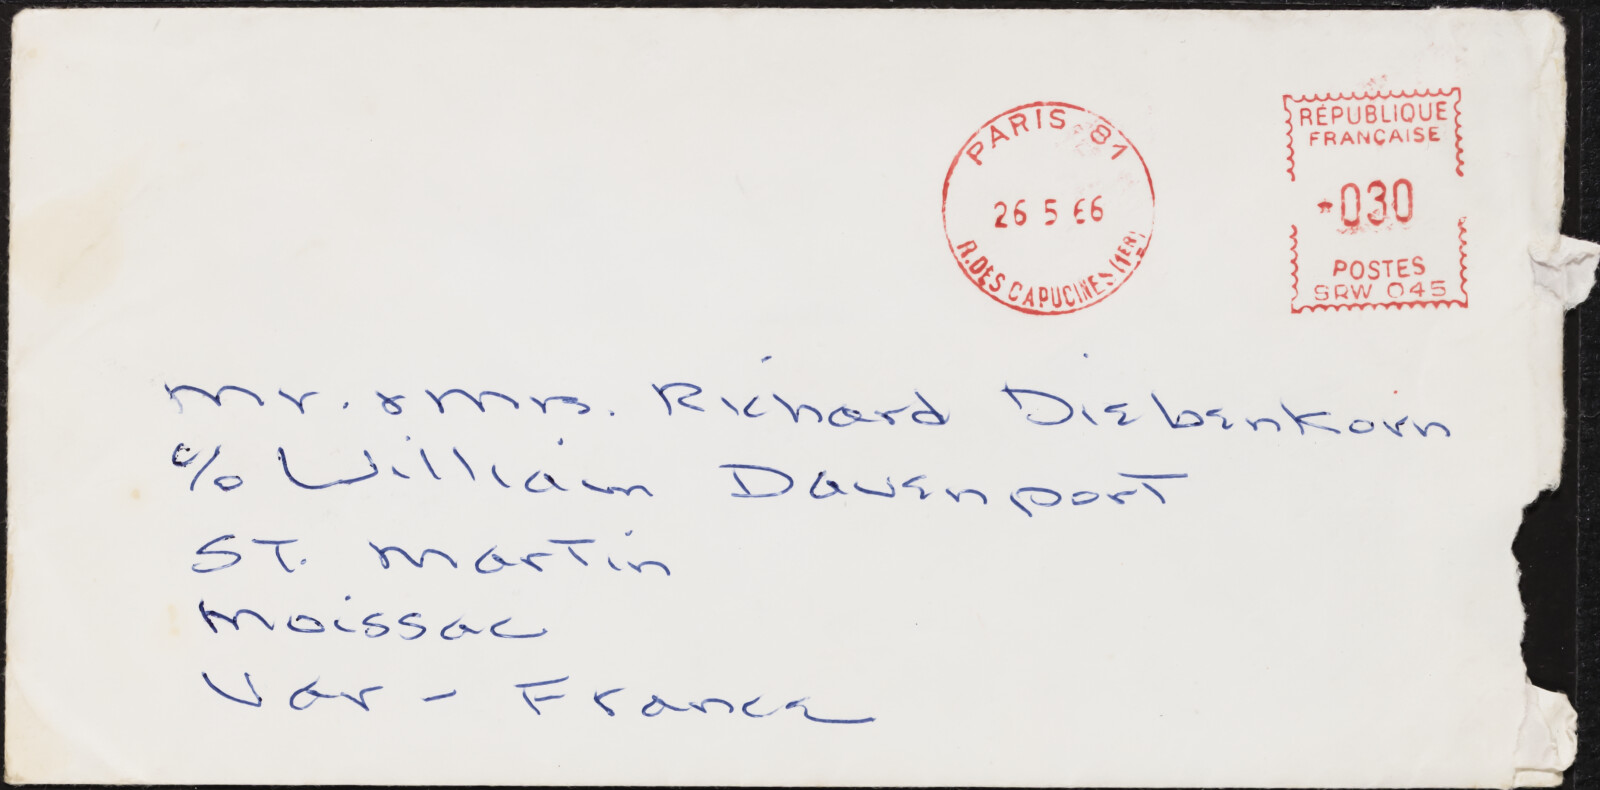 PARIS 81
26 5 66
R. DES CAPUCINES (1ER)
RÉPUBLIQUE
FRANÇAISE
*030
POSTES
SRW 045
Mr. & Mrs. Richard Diebenkorn
c/o William Davenport
St. Martin
Moissac
Var - France